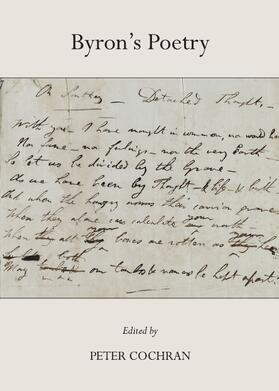 Byron's Poetry
On Southey — Detached Thoughts —
With you I have nought in common, nor would have
Nor fame — nor feelings — nor the very Earth
So let us be divided by the Grave —
As we have been by Thought — & life — & birth
And when the hungry worms their carrion
When they alone can calculate your worth —
When all your bones are rotten as
May both our tombs be kept apart
Edited by
PETER COCHRAN